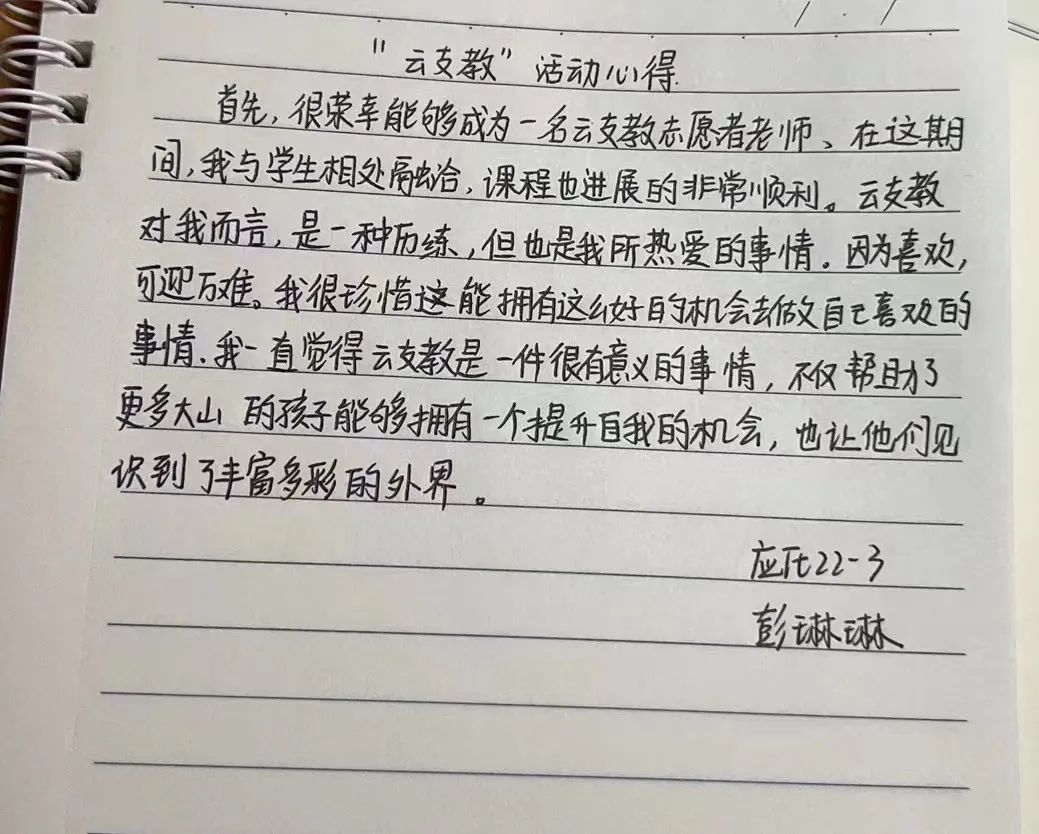 “云支教”活动心得.
首先,很荣幸能够成为一名云支教志愿者老师、在这期
间,我与学生相处融洽,课程也进展的非常顺利。云支教
对我而言,是一种历练,但也是我所热爱的事情。因为喜欢,
可迎万难。我很珍惜这能拥有这么好的机会去做自己喜欢的
事情.我一直觉得云支教是一件很有意义的事情,不仅帮助了
更多大山的孩子能够拥有一个提升自我的机会,也让他们见
识到了丰富多彩的外界。
22-3
彭琳琳